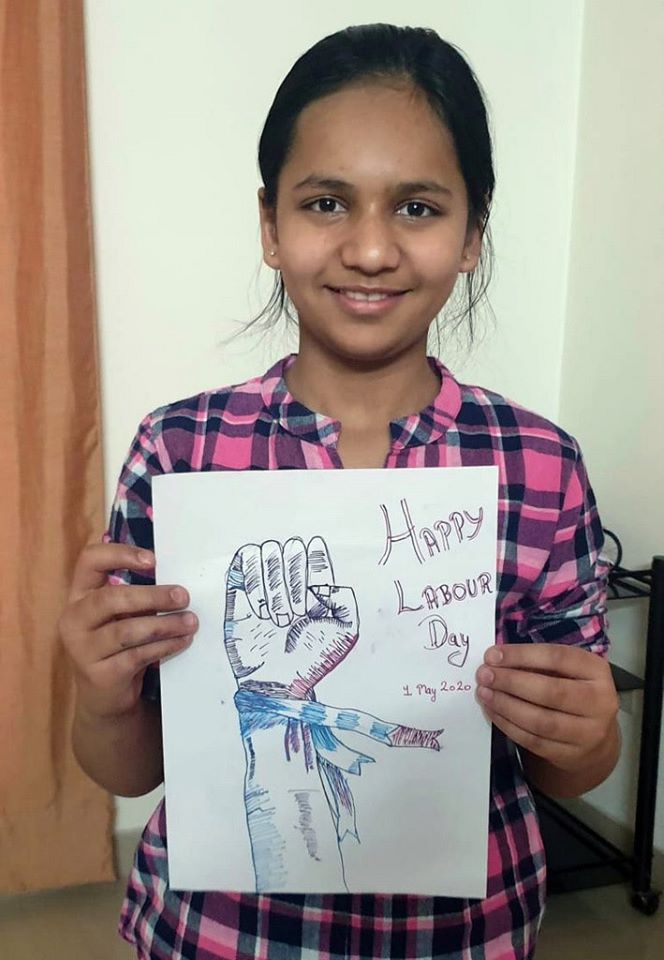 HAPPY
LABOUR
Day
1 May 2020